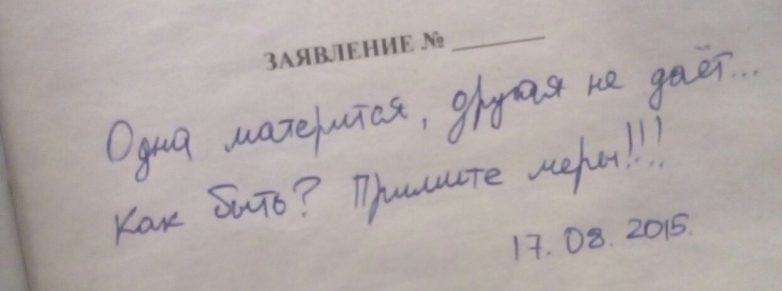 ЗАЯВЛЕНИЕ № ______
Одна матерится, другая не даёт...
Как быть? Примите меры!!!
17.08.2015.